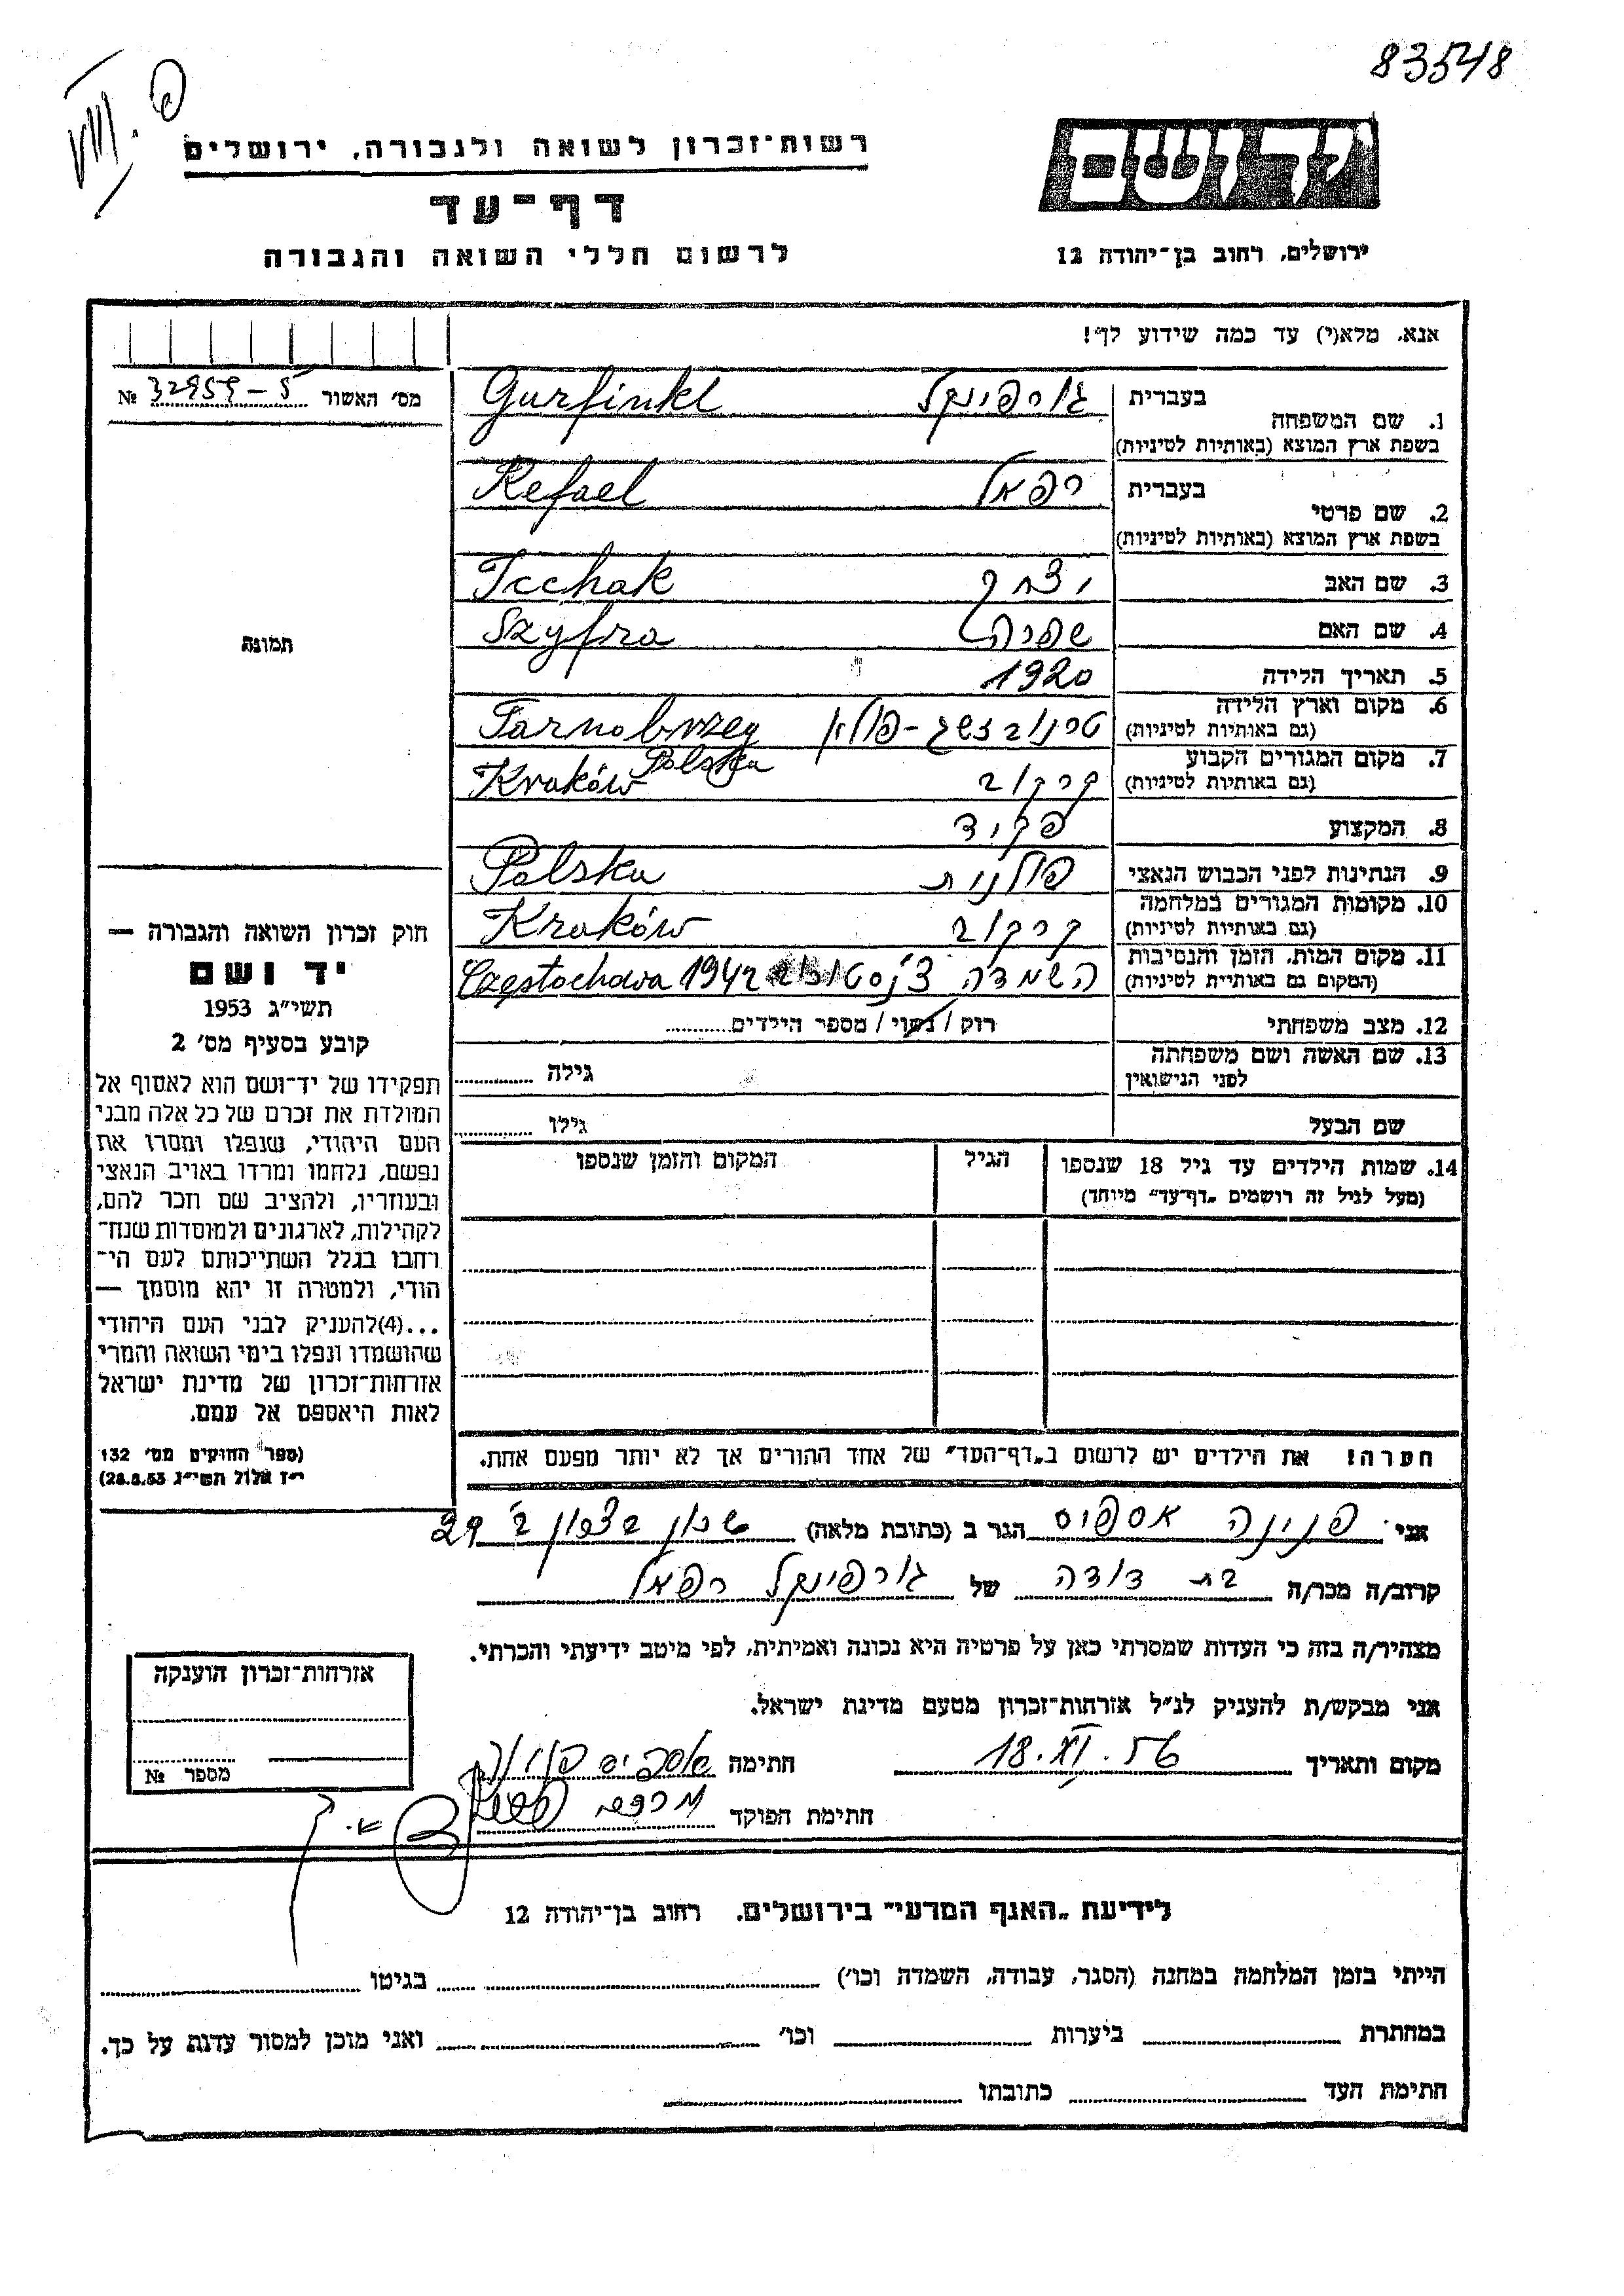 83548
VIII. פ
רשות־זכרון לשואה ולגבורה, ירושלים
יד ושם
דף־עד
לרשום חללי השואה והגבורה
ירושלים, רחוב בן־יהודה 12
אנא, מלא(י) עד כמה שידוע לך!
מס' האשור 32959-5 №
1. שם המשפחה בעברית גורפינקל Gurfinkl
בשפת ארץ המוצא (באותיות לטיניות)
2. שם פרטי בעברית רפאל Refael
בשפת ארץ המוצא (באותיות לטיניות)
3. שם האב יצחק Icchak
4. שם האם שפרה Szyfra
5. תאריך הלידה 1920
6. מקום וארץ הלידה טרנובז'שג - פולין Tarnobrzeg Polska
(גם באותיות לטיניות)
7. מקום המגורים הקבוע קרקוב Kraków
(גם באותיות לטיניות)
8. המקצוע פקיד
9. הנתינות לפני הכבוש הנאצי פולנית Polska
10. מקומות המגורים במלחמה קרקוב Kraków
(גם באותיות לטיניות)
11. מקום המות, הזמן והנסיבות השמדה צ'נסטוכוב 1942 Częstochowa
(המקום גם באותיית לטיניות)
12. מצב משפחתי רוק / נשוי / מספר הילדים
13. שם האשה ושם משפחתה גילה
לפני הנישואין
שם הבעל גילו
14. שמות הילדים עד גיל 18 שנספו הגיל המקום והזמן שנספו
(מעל לגיל זה רושמים „דף־עד” מיוחד)
הערה! את הילדים יש לרשום ב„דף־העד” של אחד ההורים אך לא יותר מפעם אחת.
תמונה
חוק זכרון השואה והגבורה —
יד ושם
תשי״ג 1953
קובע בסעיף מס' 2
תפקידו של יד־ושם הוא לאסוף אל
המולדת את זכרם של כל אלה מבני
העם היהודי, שנפלו ומסרו את
נפשם, נלחמו ומרדו באויב הנאצי
ובעוזריו, ולהציב שם וזכר להם,
לקהילות, לארגונים ולמוסדות שנח־
רחבו בגלל השתייכותם לעם הי־
הודי, ולמטרה זו יהא מוסמך —
...(4)להעניק לבני העם היהודי
שהושמדו ונפלו בימי השואה והמרי
אזרחות־זכרון של מדינת ישראל
לאות היאספם אל עמם.
(ספר החוקים מס' 132
י״ז אלול תשי״ג 28.8.53)
אני פנינה אספיס הגר ב (כתובת מלאה) שכון בצפון ב' 29
קרוב/ה מכר/ה בת דודה של גורפינקל רפאל
מצהיר/ה בזה כי העדות שמסרתי כאן על פרטיה היא נכונה ואמיתית, לפי מיטב ידיעתי והכרתי.
אני מבקש/ת להעניק לנ״ל אזרחות־זכרון מטעם מדינת ישראל.
מקום ותאריך 18.XI.56 חתימה אספיס פנינה
חתימת הפוקד
אזרחות־זכרון הוענקה
מספר №
לידיעת „האגף המדעי” בירושלים, רחוב בן־יהודה 12
הייתי בזמן המלחמה במחנה (הסגר, עבודה, השמדה וכו') בגיטו
במחתרת ביערות וכו' ואני מוכן למסור עדות על כך.
חתימת העד כתובתו